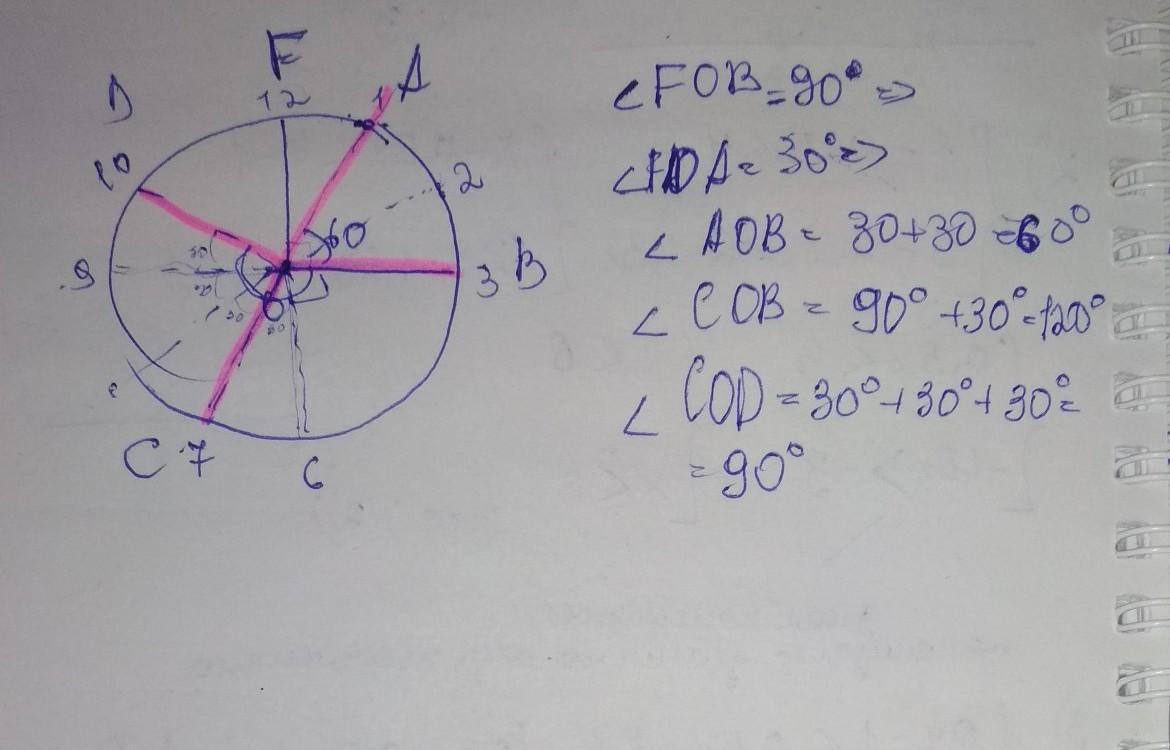 F
D
12
1 A
10
2
60
30
9
3 B
30
30
O
30
C 7
6
∠FOB=90° =>
∠FOA=30° =>
∠ AOB = 30+30 =60°
∠ COB = 90° +30°=120°
∠ COD = 30°+30°+30°=
=90°